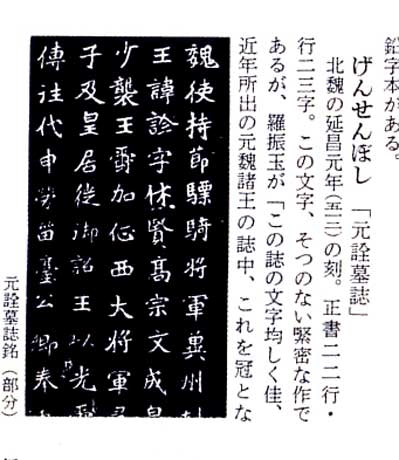 鉛字本がある。
げんせんぼし 「元詮墓誌」
北魏の延昌元年(五一二)の刻。正書二二行・
行二三字。この文字、そつのない緊密な作で
あるが、羅振玉が「この誌の文字均しく佳、
近年所出の元魏諸王の誌中、これを冠とな
魏使持節驃騎将軍冀州
王諱詮字休賢高宗文成皇
少襲王爵加征西大将軍
子及皇居徙御詔王以光爵
傳往代申労留臺公卿奉
元詮墓誌銘(部分)